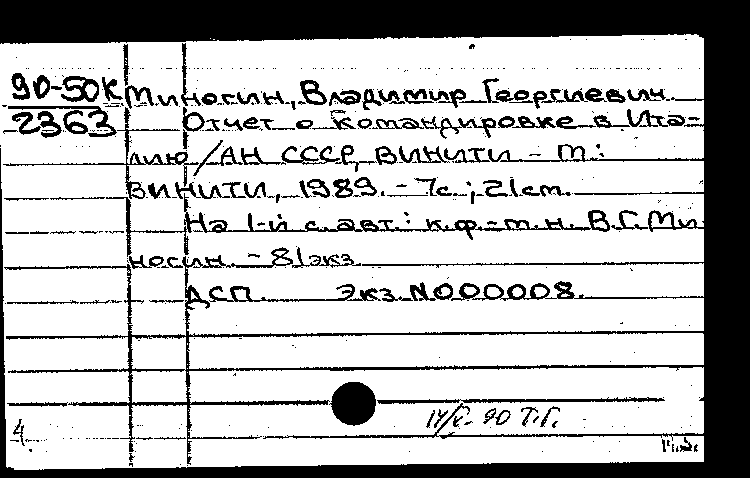 90-50К Миногин, Владимир Георгиевич.
2363 Отчет о командировке в Ита-
лию / АН СССР, ВИНИТИ - М.:
ВИНИТИ, 1989. - 7с.; 21см.
На 1-й с. авт.: к.ф.-м.н. В.Г. Ми-
ногин. - 81экз.
ДСП. Экз. N000008.
90 Т.Г.
4.